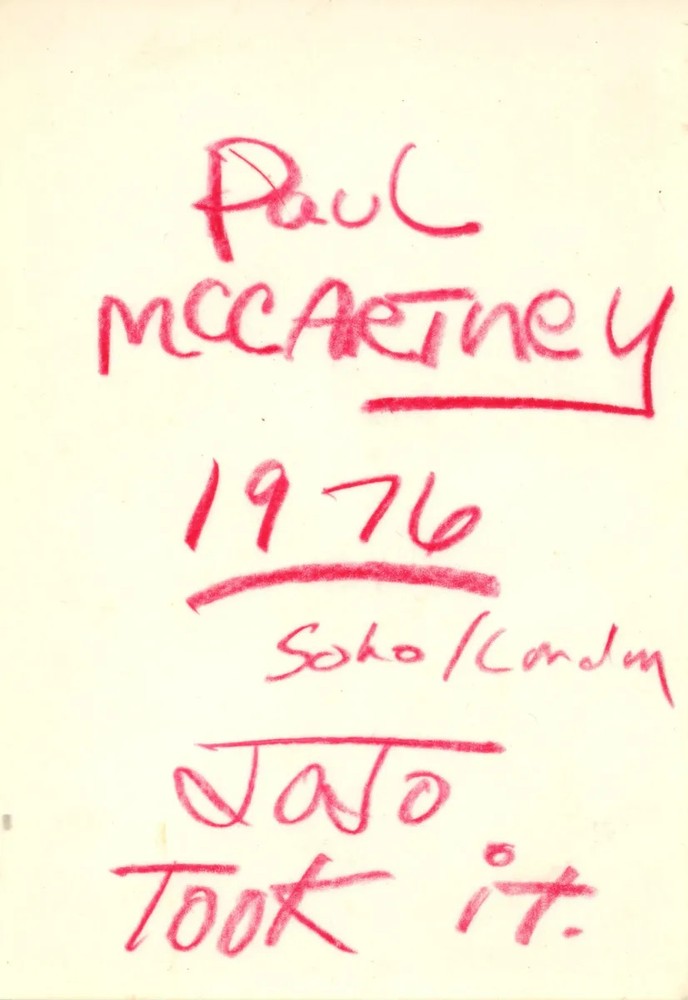 Paul
McCARTneY
1976
Soho/London
JoJo
TOOK it.